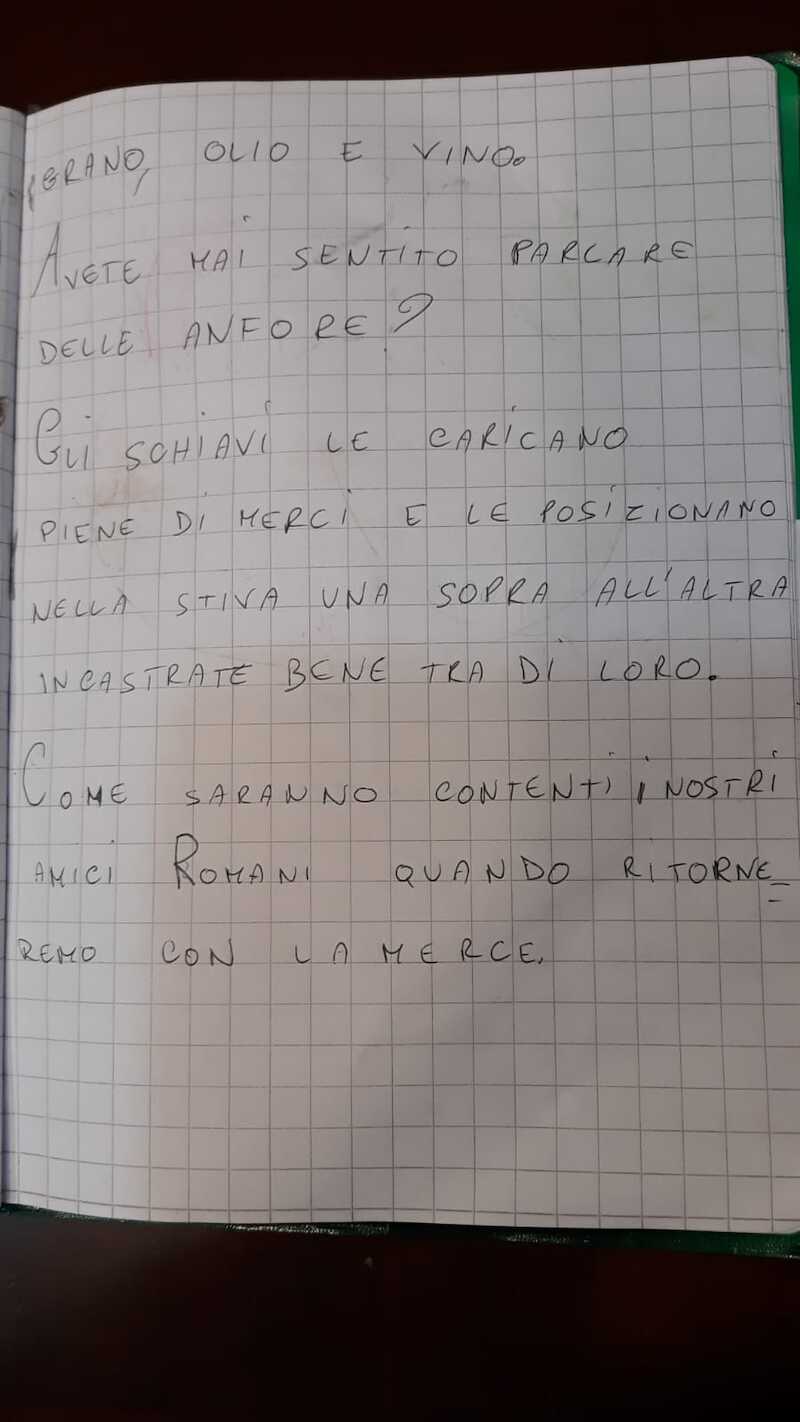 GRANO, OLIO E VINO.
AVETE MAI SENTITO PARLARE
DELLE ANFORE?
GLI SCHIAVI LE CARICANO
PIENE DI MERCI E LE POSIZIONANO
NELLA STIVA UNA SOPRA ALL'ALTRA
INCASTRATE BENE TRA DI LORO.
COME SARANNO CONTENTI I NOSTRI
AMICI ROMANI QUANDO RITORNE=
REMO CON LA MERCE.